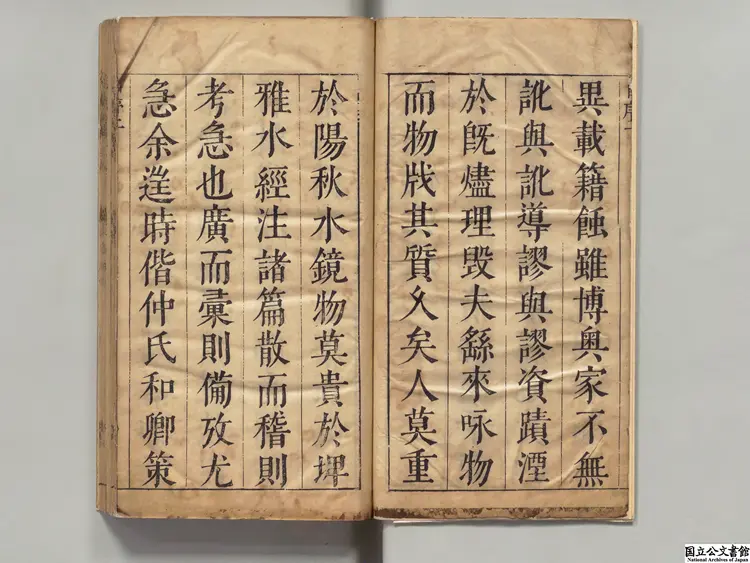 異載籍蝕雖博奥家不無
訛與訛導謬與謬資蹟湮
於旣燼理毀夫繇來咏物
而物戕其質久矣人莫重
於陽秋水鏡物莫貴於埤
雅水經注諸篇散而稽則
考急也廣而彙則備攷尤
急余時偕仲氏和卿策
国立公文書館
National Archives of Japan